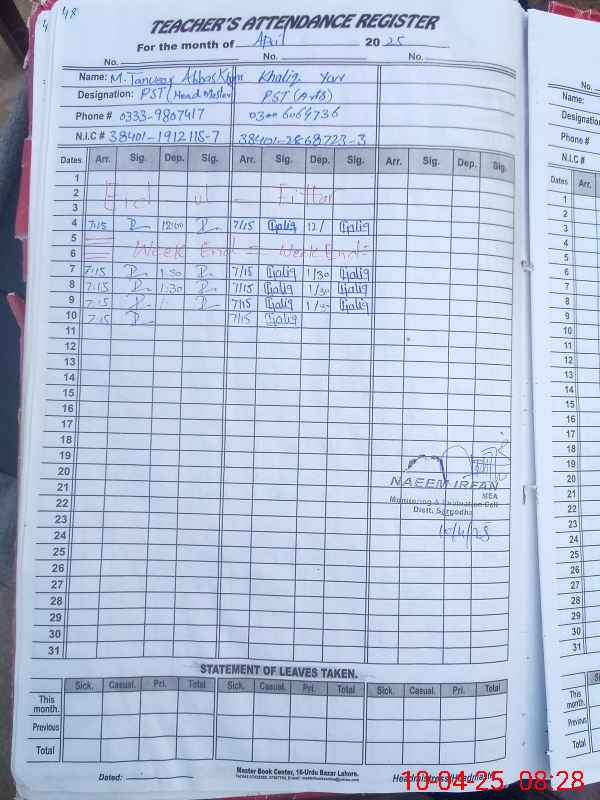 48
TEACHER'S ATTENDANCE REGISTER
For the month of April 2025
No. No. No.
Name: M. Tanveer Abbas Khan Khaliq Yar
Designation: PST (Head Master) PST (Arts)
Phone # 0333-9867417
N.I.C # 38401-1912115-7 38401-2868723-3
Dates Arr. Sig. Dep. Sig. Arr. Sig. Dep. Sig. Arr. Sig. Dep. Sig.
1
2 Eid - ul - Fitter
3
4 7/15 12:00 7/15 Khaliq 12/ Khaliq
5
Week End = Week End =
6
7 7:15 1:30 7/15 Khaliq 1/30 Khaliq
8 7:15 1:30 7/15 Khaliq 1/30 Khaliq
9 7:15 7/15 Khaliq 1/30 Khaliq
10 7:15 7/15 Khaliq
11
12
13
14
15
16
17
18
19
20
21
22
23
24
25
26
27
28
29
30
31
NAEEM IRFAN
MEA
Monitoring & Evaluation Cell
Distt. Sargodha
10/4/25
STATEMENT OF LEAVES TAKEN.
Sick. Casual. Pri. Total Sick. Casual. Pri. Total Sick. Casual. Pri. Total
This month.
Previous
Total
Master Book Center, 16-Urdu Bazar Lahore.
Dated: Headmistress/Headmaster
10-04-25 08:28
Name:
Designation
Phone #
N.I.C #
Dates Arr.
1
2
3
4
5
6
7
8
9
10
11
12
13
14
15
16
17
18
19
20
21
22
23
24
25
26
27
28
29
30
31
Sick
This month.
Previous
Total